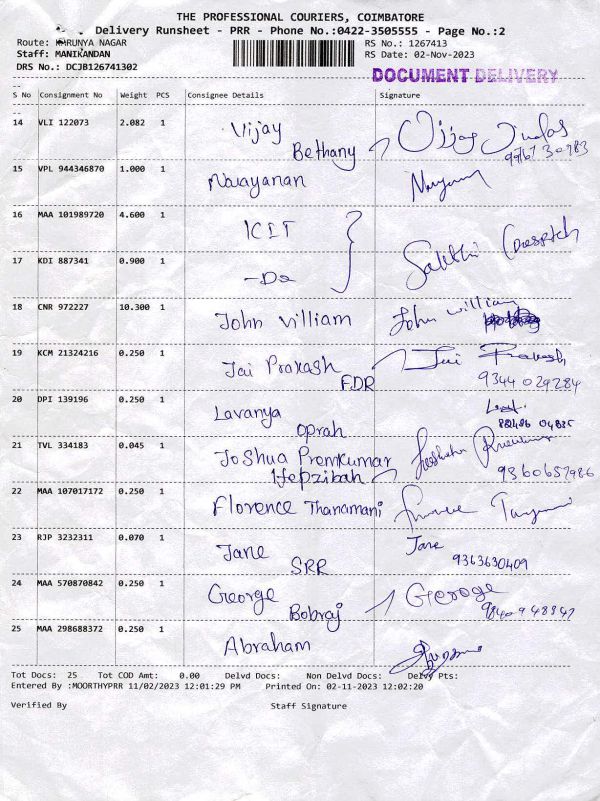 THE PROFESSIONAL COURIERS, COIMBATORE
Delivery Runsheet - PRR - Phone No.:0422-3505555 - Page No.:2
Route: KARUNYA NAGAR
RS No.: 1267413
Staff: MANIKANDAN
RS Date: 02-Nov-2023
DRS No.: DCJB126741302
DOCUMENT DELIVERY
S No Consignment No Weight PCS Consignee Details Signature
14 VLI 122073 2.082 1 Vijay Bethany Vijay Judas
15 VPL 944346870 1.000 1 Narayanan
16 MAA 101989720 4.600 1 KCIT
17 KDI 887341 0.900 1 -Do Sakthi (Despatch
18 CNR 972227 10.300 1 John Villiam John William
19 KCM 21324216 0.250 1 Jai Prakash FDR Jai Prakash
9344 029284
20 DPI 139196 0.250 1 Lavanya Oprah
21 TVL 334183 0.045 1 Joshua Premkumar Hepzibah
9360657986
22 MAA 107017172 0.250 1 Florence Thanamani
23 RJP 3232311 0.070 1 Jane SRR Jane
9363630409
24 MAA 570870842 0.250 1 George Bobraj George
25 MAA 298688372 0.250 1 Abraham
Tot Docs: 25 Tot COD Amt: 0.00 Delvd Docs: Non Delvd Docs: Delvy Pts:
Entered By :MOORTHYPRR 11/02/2023 12:01:29 PM Printed On: 02-11-2023 12:02:20
Verified By Staff Signature